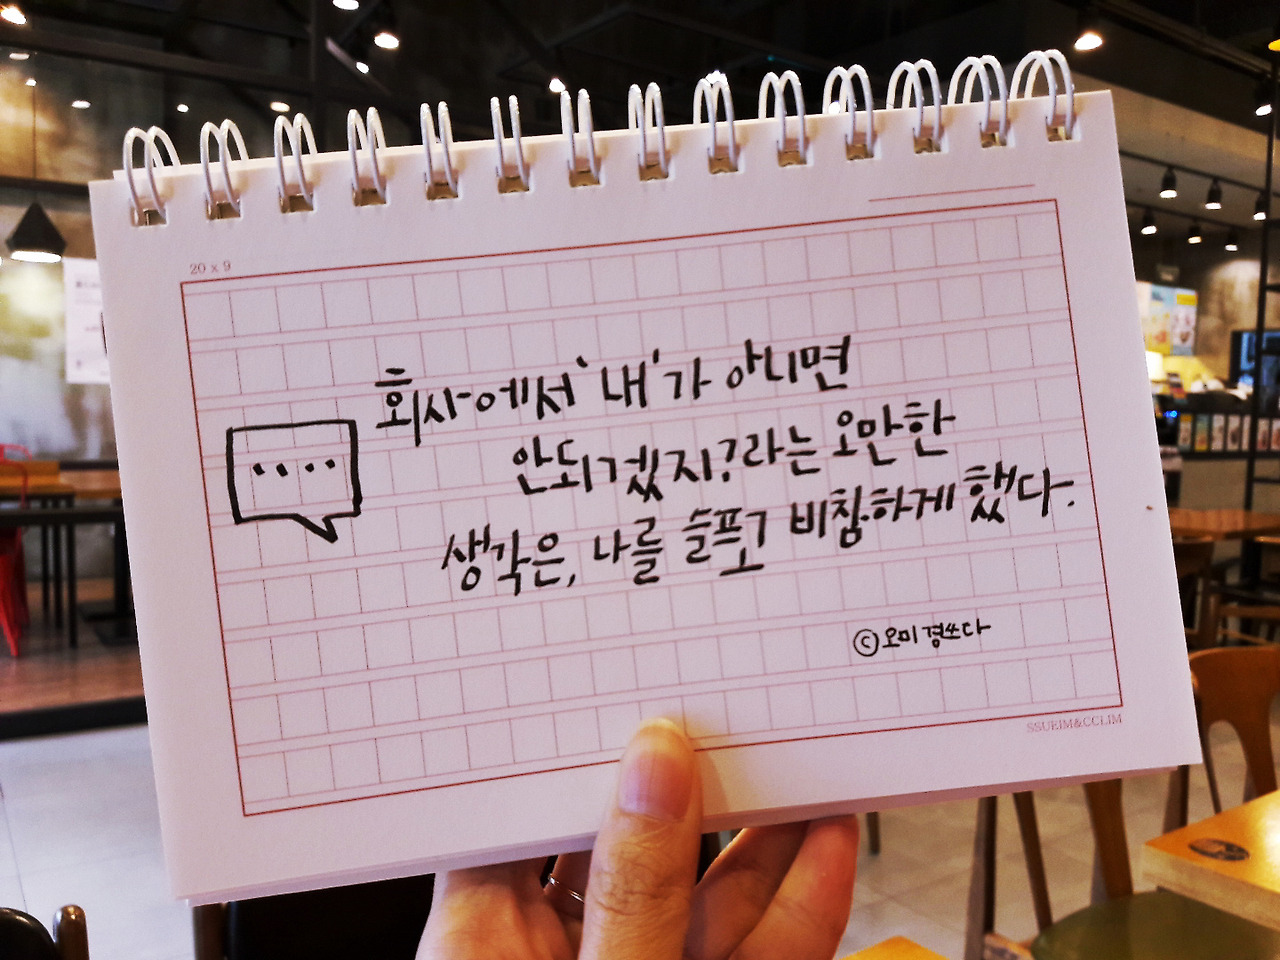 20 x 9
회사에서 '내'가 아니면
....
안되겠지?라는 오만한
생각은, 나를 슬프고 비참하게 했다.
ⓒ오미경쓰다
SSUEIM&CCLIM